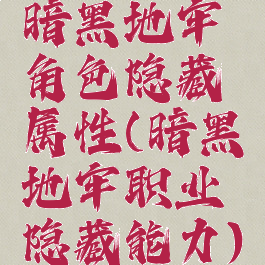 暗黑地牢
角色隐藏
属性(暗黑
地牢职业
隐藏能力)